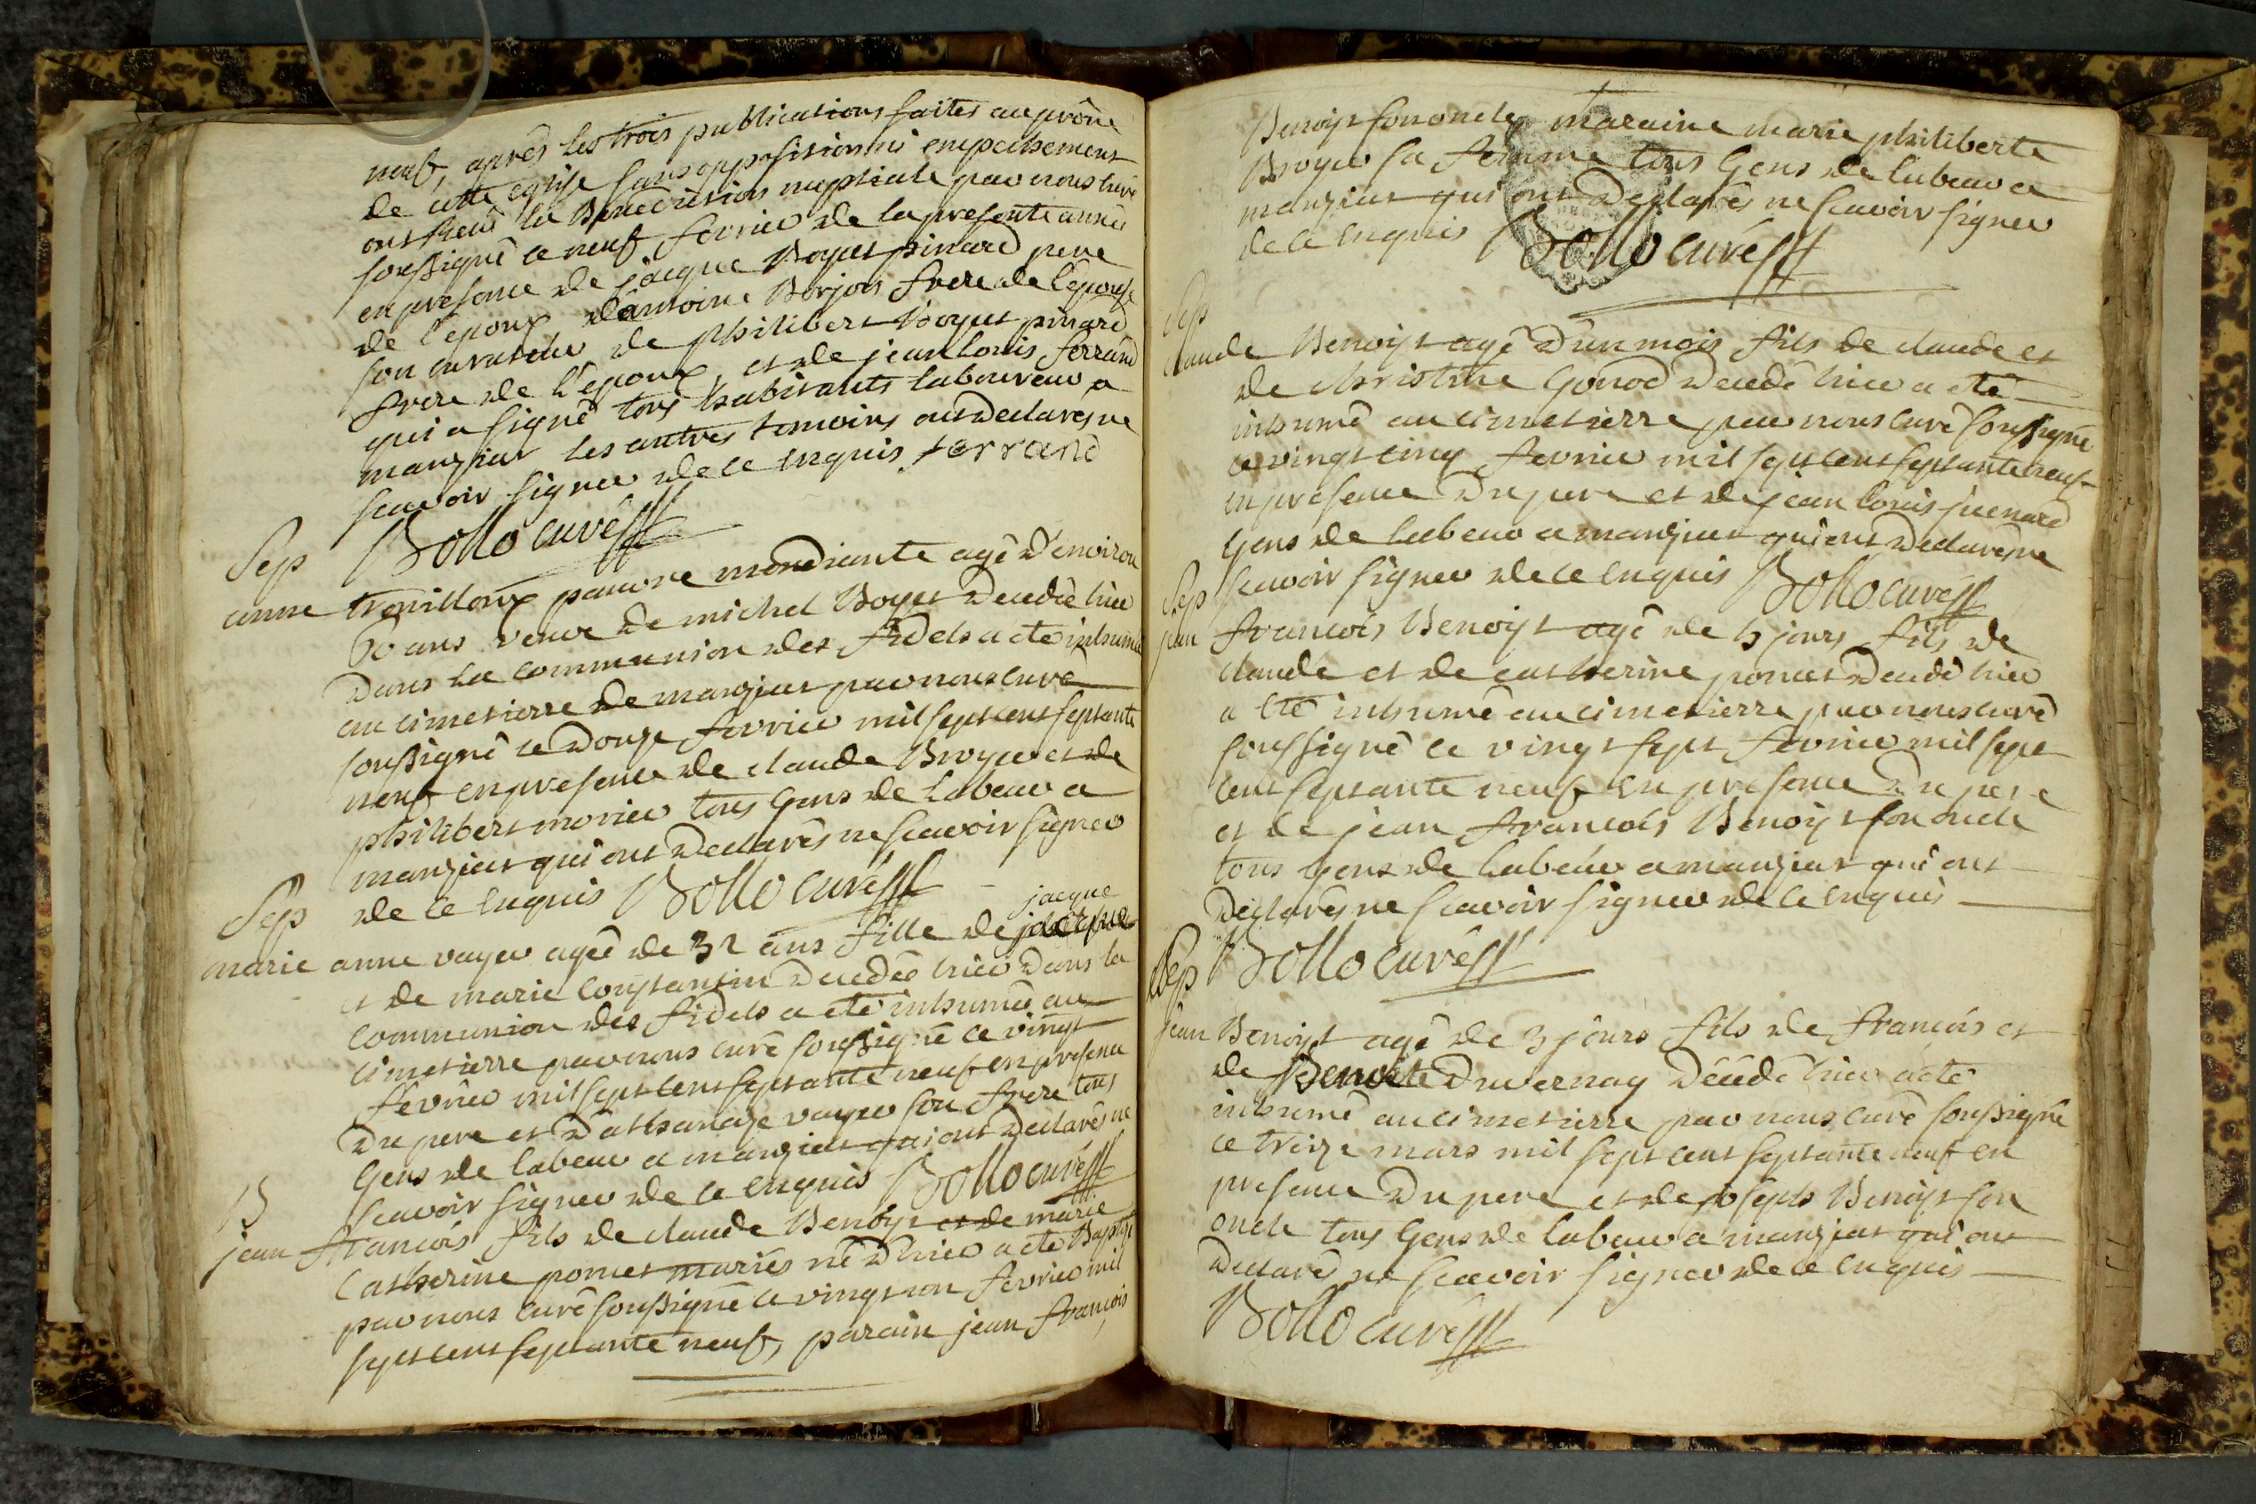 neuf, après les trois publications faites au prône
de cette eglise sans opposition ni empechement
ont reçu la Benediction nuptiale par nous curé
soussigné ce neuf fevrier de la presente année
en presence de jacque Boyet pinard pere
de l'epoux, d'antoine Borjon frere de l'epouse
son curateur de philibert Boyet pinard
frere de l'epoux, et de jean louis ferrand
qui a signé tous habitants laboureur a
manziat les autres temoins ont declarés ne
scavoir signer de ce enquis ferrand
Bollo curé
Sep
anne trouilloux pauvre mendiante agé d'environ
60 ans veuve de michel Boyet decedée hier
dans la communion des fidels a eté inhumé
au cimetierre de manziat par nous curé
soussigné ce douze fevrier mil sept cent septante
neuf en presence de claude Broyer et de
philibert morier tous gens de labeur a
manziat qui ont declarés ne scavoir signer
Sep de ce enquis Bollo curé
jacque
marie anne vayer agée de 32 ans fille de jacque
et de marie constantin decedée hier dans la
communion des fidels a eté inhumée au
cimetierre par nous curé soussigné ce vingt
fevrier mil sept cent septante neuf en presence
du pere et d'athanaze vayer son frere tous
gens de labeur a manziat qui ont declarés ne
scavoir signer de ce enquis Bollo curé
B
jean françois fils de claude Benoist et de marie
Catherine poncet mariés né d'hier a eté Baptizé
par nous curé soussigné ce vingt un fevrier mil
sept cent septante neuf, parain jean françois
Benoist son oncle, maraine marie philiberte
Broyer sa femme tous gens de labeur a
manziat qui ont declarés ne scavoir signer
de ce enquis Bollo curé
Sep
claude Benoist agé d'un mois fils de claude et
de christine gonod decedé hier a eté
inhumé au cimetierre par nous curé soussigné
ce vingt cinq fevrier mil sept cent septante neuf
en presence du pere et de jean louis
gens de labeur a manziat qui ont declarés ne
Sep scavoir signer de ce enquis Bollo curé
jean francois Benoist agé de 5 jours fils de
claude et de catherine poncet decedé hier
a eté inhumé au cimetierre par nous curé
soussigné ce vingt sept fevrier mil sept
cent septante neuf en presence du pere
et de jean francois Benoist son oncle
tous gens de labeur a manziat qui ont
declarés ne scavoir signer de ce enquis
Sep Bollo curé
jean Benoist agé de 3 jours fils de françois et
de Benoite duvernay decedé hier a eté
inhumé au cimetierre par nous curé soussigné
ce treize mars mil sept cent septante neuf en
presence du pere et de joseph Benoist son
oncle tous gens de labeur a manziat qui ont
declarés ne scavoir signer de ce enquis
Bollo curé